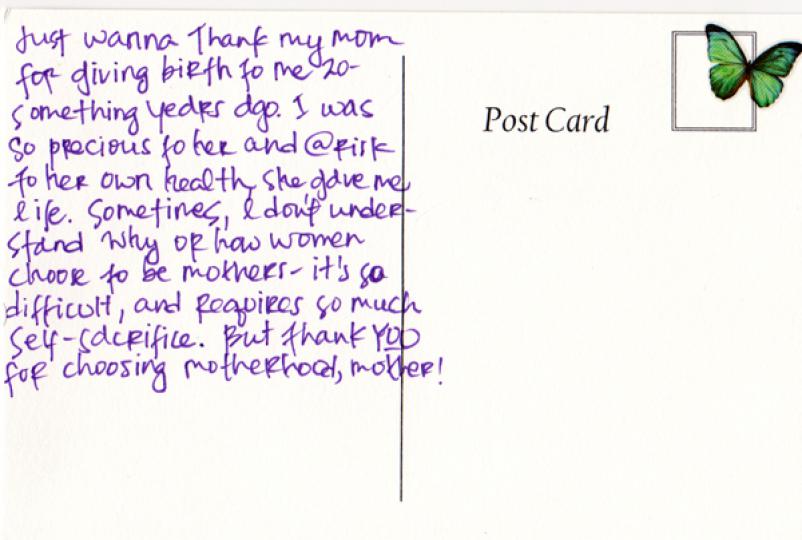 Just wanna Thank my mom
for giving birth to me 20-
something years ago. I was
so precious to her and @risk
to her own health, she gave me
life. Sometimes, I don't under-
stand why or how women
choose to be mothers - it's so
difficult, and requires so much
self-sacrifice. But thank YOU
for choosing motherhood, mother!
Post Card